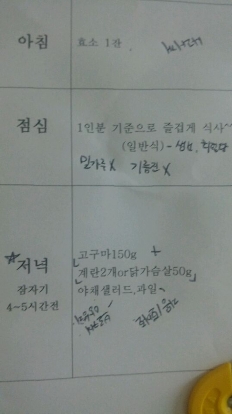 아침
효소 1잔
점심
1인분 기준으로 즐겁게 식사^^
(일반식) -
밀가루 X 기름진 X
☆저녁
잠자기
4~5시간전
고구마150g +
계란2개or닭가슴살50g
야채샐러드,과일